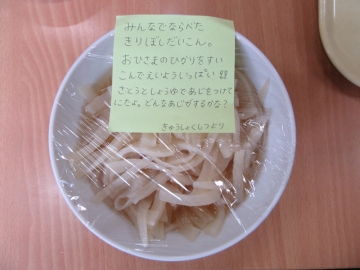 みんなでならべた
きりぼしだいこん。
おひさまのひかりをすい
こんでえいようしっぱい!!
さとうとしょうゆであじをつけて
にたよ。どんなあじがするかな?
きゅうしょくしつより